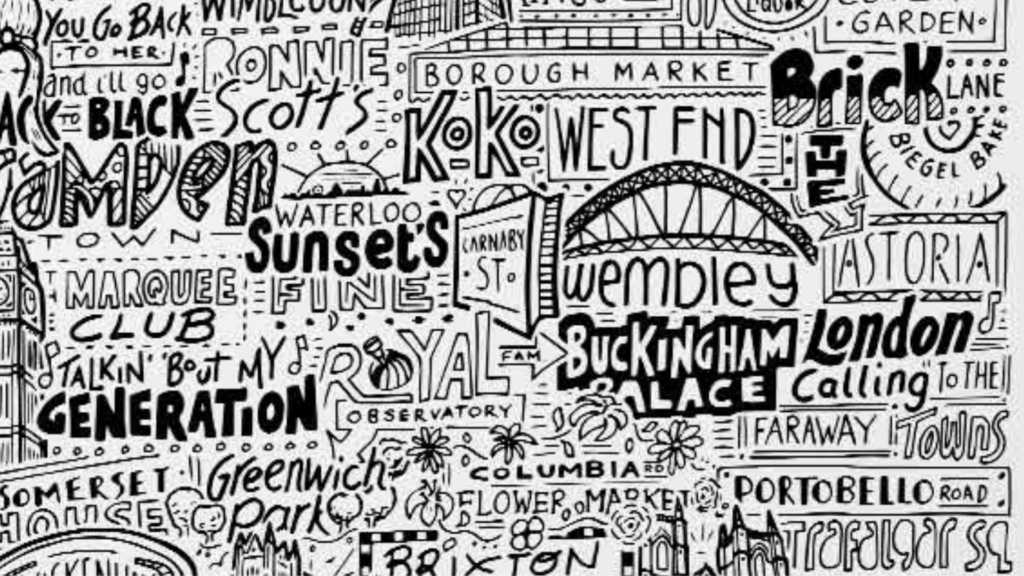 You Go Back
TO HER
and i'll go
BACK TO BLACK
WIMBLEDON
RONNIE
SCOTT'S
LIQUOR
GARDEN
BOROUGH MARKET
Brick LANE
THE
BIEGEL BAKE
KoKo
WEST END
Camden
TOWN
WATERLOO
Sunset's
FINE
CARNABY
ST.
wembley
ASTORIA
MARQUEE
CLUB
TALKIN' 'Bout MY
GENERATION
ROYAL
OBSERVATORY
FAM
BUCKINGHAM
PALACE
London
Calling "To THE
FARAWAY Towns
SOMERSET
HOUSE
Greenwich
Park
COLUMBIA RD
FLOWER MARKET
PORTOBELLO ROAD
Trafalgar SQ
BRIXTON